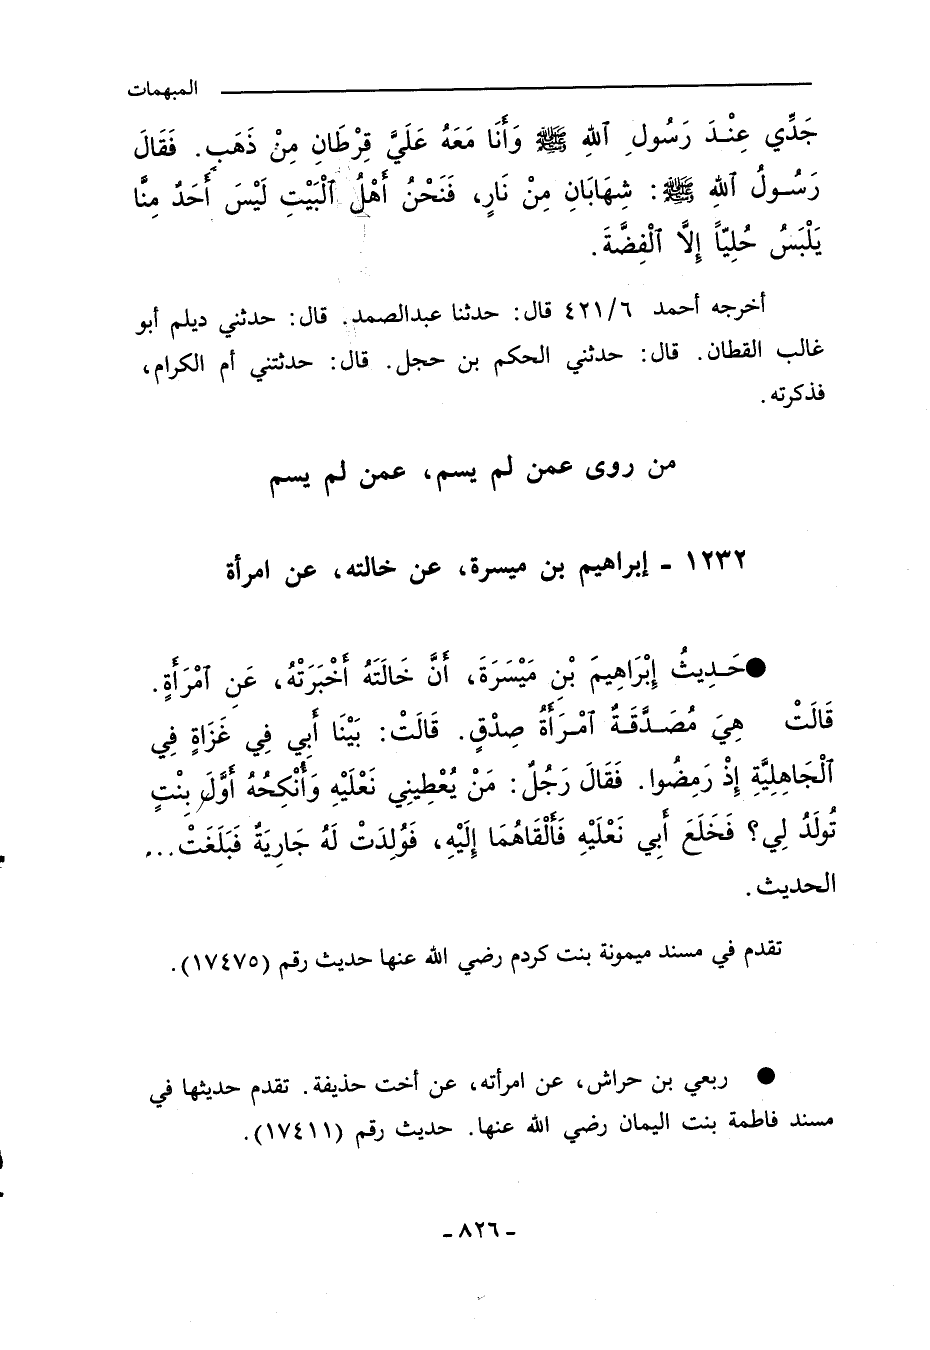 المبهمات
جَدِّي عِنْدَ رَسُولِ ٱللهِ ﷺ وَأَنَا مَعَهُ عَلَيَّ قِرْطَانِ مِنْ ذَهَبٍ. فَقَالَ
رَسُولُ ٱللهِ ﷺ: شِهَابَانِ مِنْ نَارٍ، فَنَحْنُ أَهْلُ ٱلْبَيْتِ لَيْسَ أَحَدٌ مِنَّا
يَلْبَسُ حُلِيّاً إِلَّا ٱلْفِضَّةَ.
أخرجه أحمد ٦/٤٢١ قال: حدثنا عبدالصمد. قال: حدثني ديلم أبو
غالب القطان. قال: حدثني الحكم بن حجل. قال: حدثتني أم الكرام،
فذكرته.
من روى عمن لم يسم، عمن لم يسم
١٢٣٢ - إبراهيم بن ميسرة، عن خالته، عن امرأة
● حَدِيثُ إِبْرَاهِيمَ بْنِ مَيْسَرَةَ، أَنَّ خَالَتَهُ أَخْبَرَتْهُ، عَنِ ٱمْرَأَةٍ.
قَالَتْ هِيَ مُصَدَّقَةٌ ٱمْرَأَةُ صِدْقٍ. قَالَتْ: بَيْنَا أَبِي فِي غَزَاةٍ فِي
ٱلْجَاهِلِيَّةِ إِذْ رَمِضُوا. فَقَالَ رَجُلٌ: مَنْ يُعْطِينِي نَعْلَيْهِ وَأُنْكِحُهُ أَوَّلَ بِنْتٍ
تُولَدُ لِي؟ فَخَلَعَ أَبِي نَعْلَيْهِ فَأَلْقَاهُمَا إِلَيْهِ، فَوُلِدَتْ لَهُ جَارِيَةٌ فَبَلَغَتْ...
الحديث.
تقدم في مسند ميمونة بنت كردم رضي الله عنها حديث رقم (١٧٤٧٥).
● ربعي بن حراش، عن امرأته، عن أخت حذيفة. تقدم حديثها في
مسند فاطمة بنت اليمان رضي الله عنها. حديث رقم (١٧٤١١).
- ٨٢٦ -